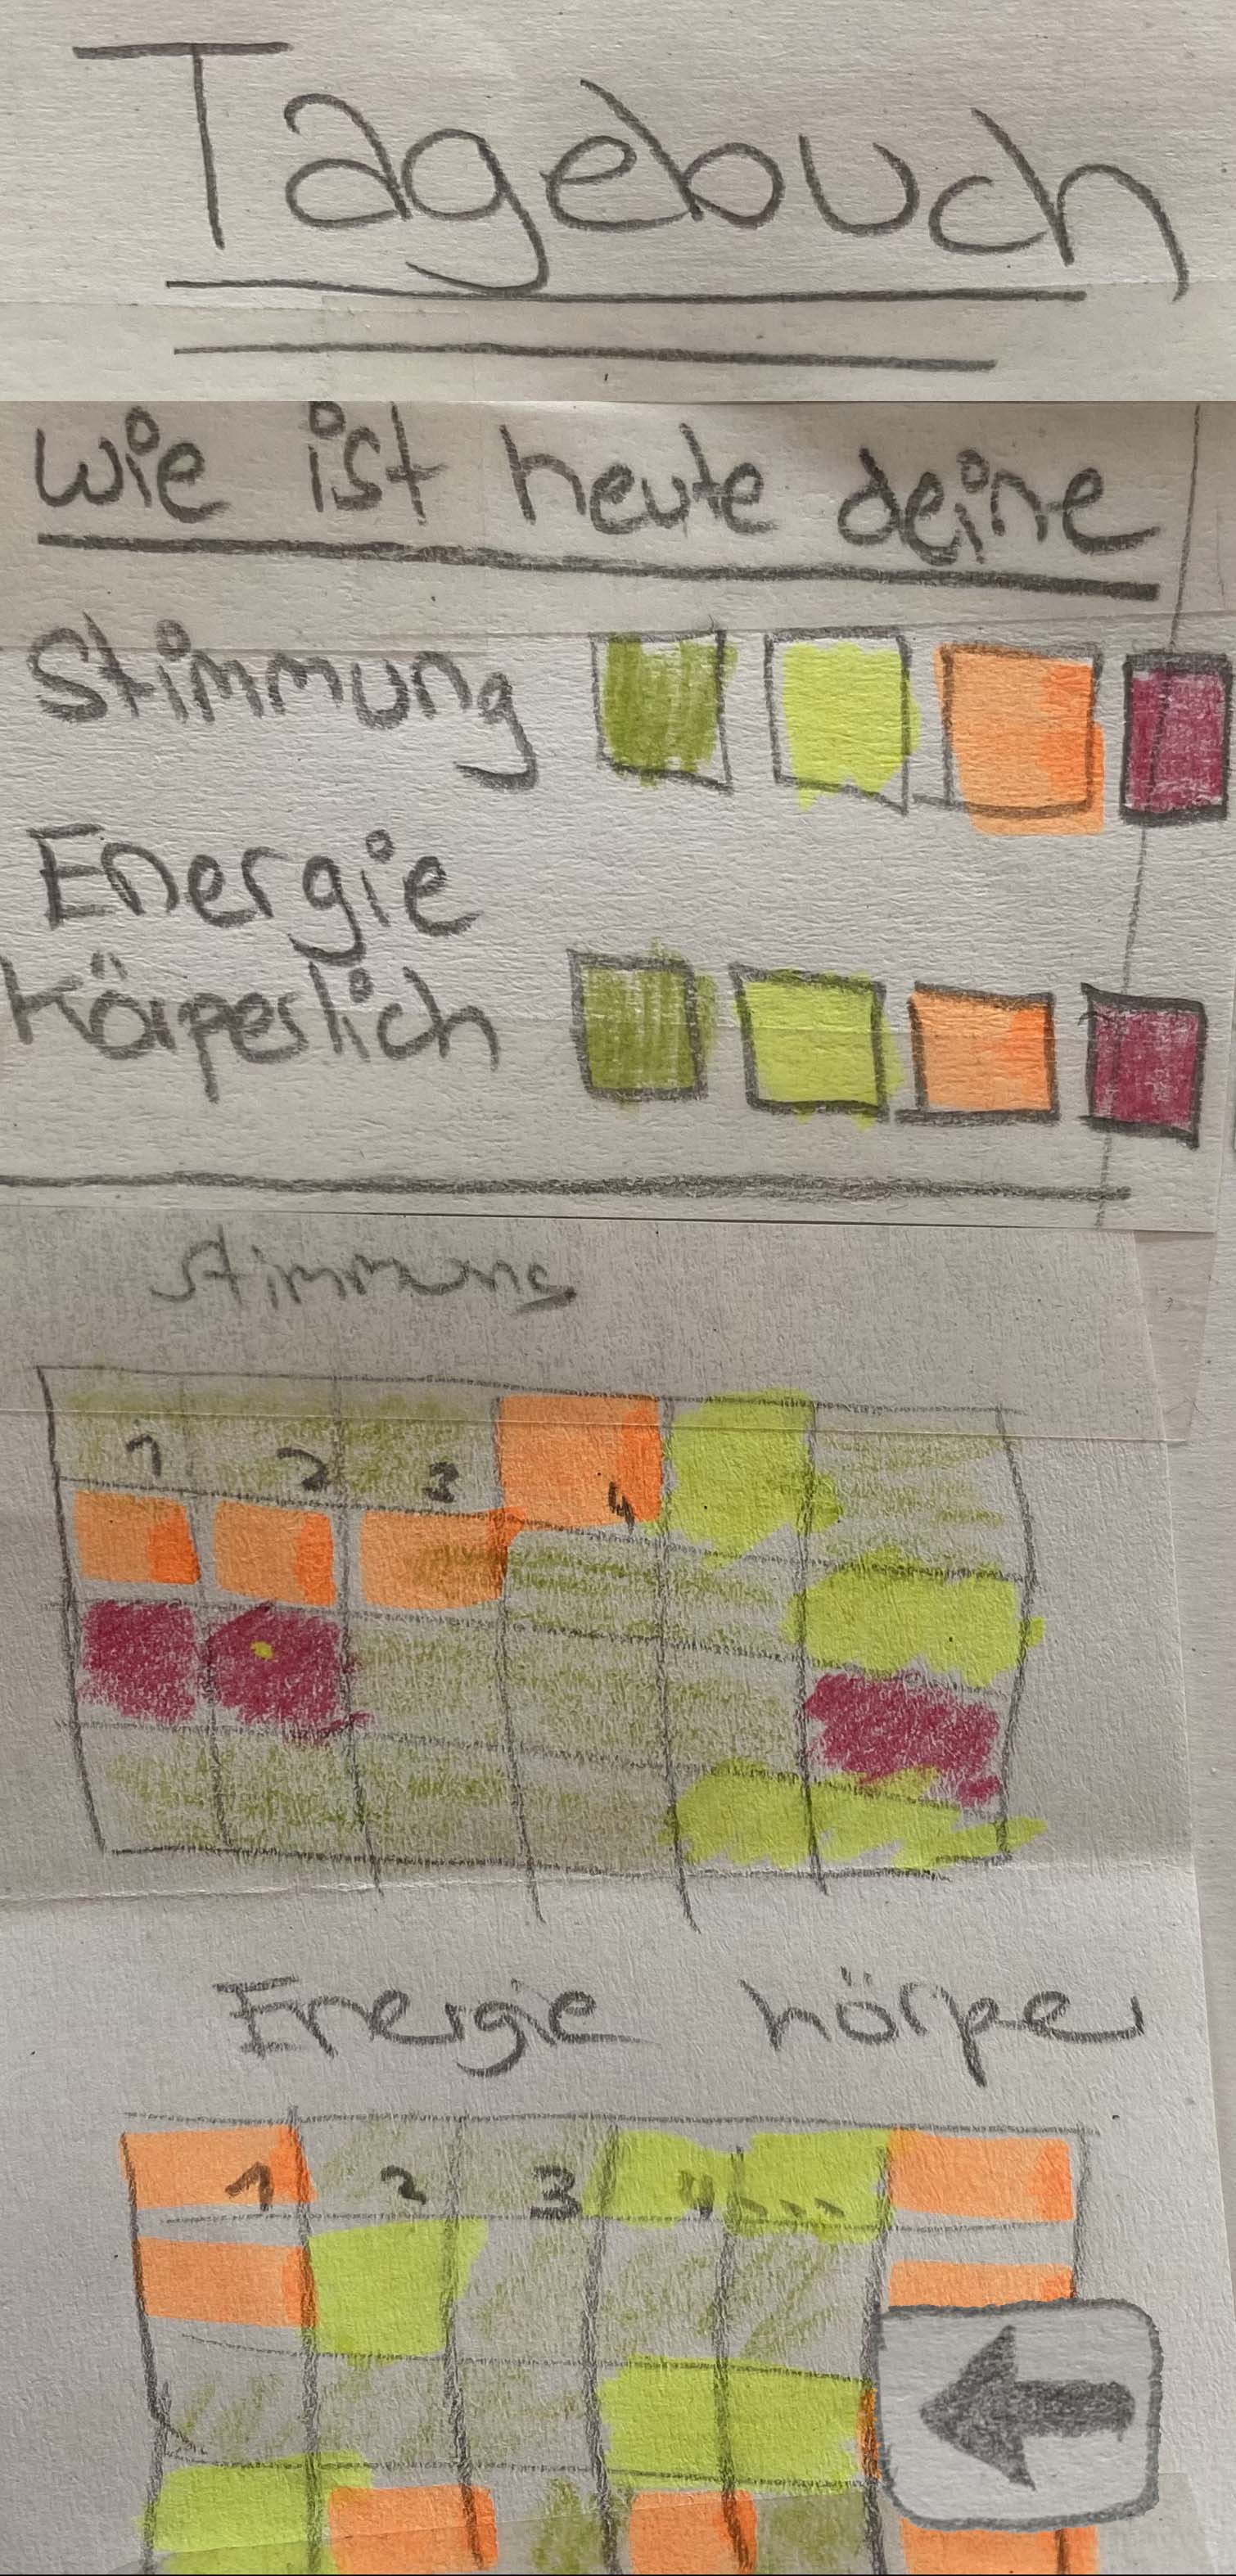 Tagebuch
wie ist heute deine
Stimmung
Energie
körperlich
Stimmung
1 2 3 4
Energie körper
1 2 3 4 ...